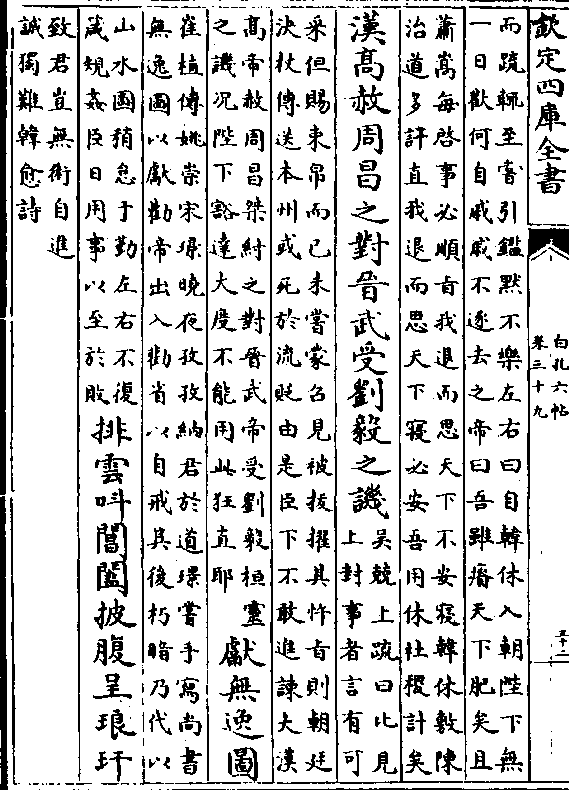 欽定四庫全書
白孔六帖
卷三十九
五十二
而疏輒至嘗引鑑默不樂左右曰自韓休入朝陛下無
一日歡何自戚戚不逐去之帝曰吾雖瘠天下肥矣且
蕭嵩每啓事必順旨我退而思天下不安寢韓休敷陳
治道多訐直我退而思天下寢必安吾用休社稷計矣
漢高赦周昌之對晉武受劉毅之譏
吳兢上疏曰比見
上封事者言有可
采但賜束帛而已未嘗蒙召見被拔擢其忤旨則朝廷
決杖傳送本州或死於流貶由是臣下不敢進諫大漢
高帝赦周昌桀紂之對晉武帝受劉毅桓靈
之譏況陛下豁達大度不能用此狂直耶
獻無逸圖
崔植傳姚崇宋璟曉夜孜孜納君於道璟嘗手寫尚書
無逸圖以獻勸帝出入勸省以自戒其後朽暗乃代以
山水圖稍怠于勤左右不復
箴規姦臣日用事以至於敗
排雲叫閶闔披腹呈琅玕
致君豈無術自進
誠獨難韓愈詩